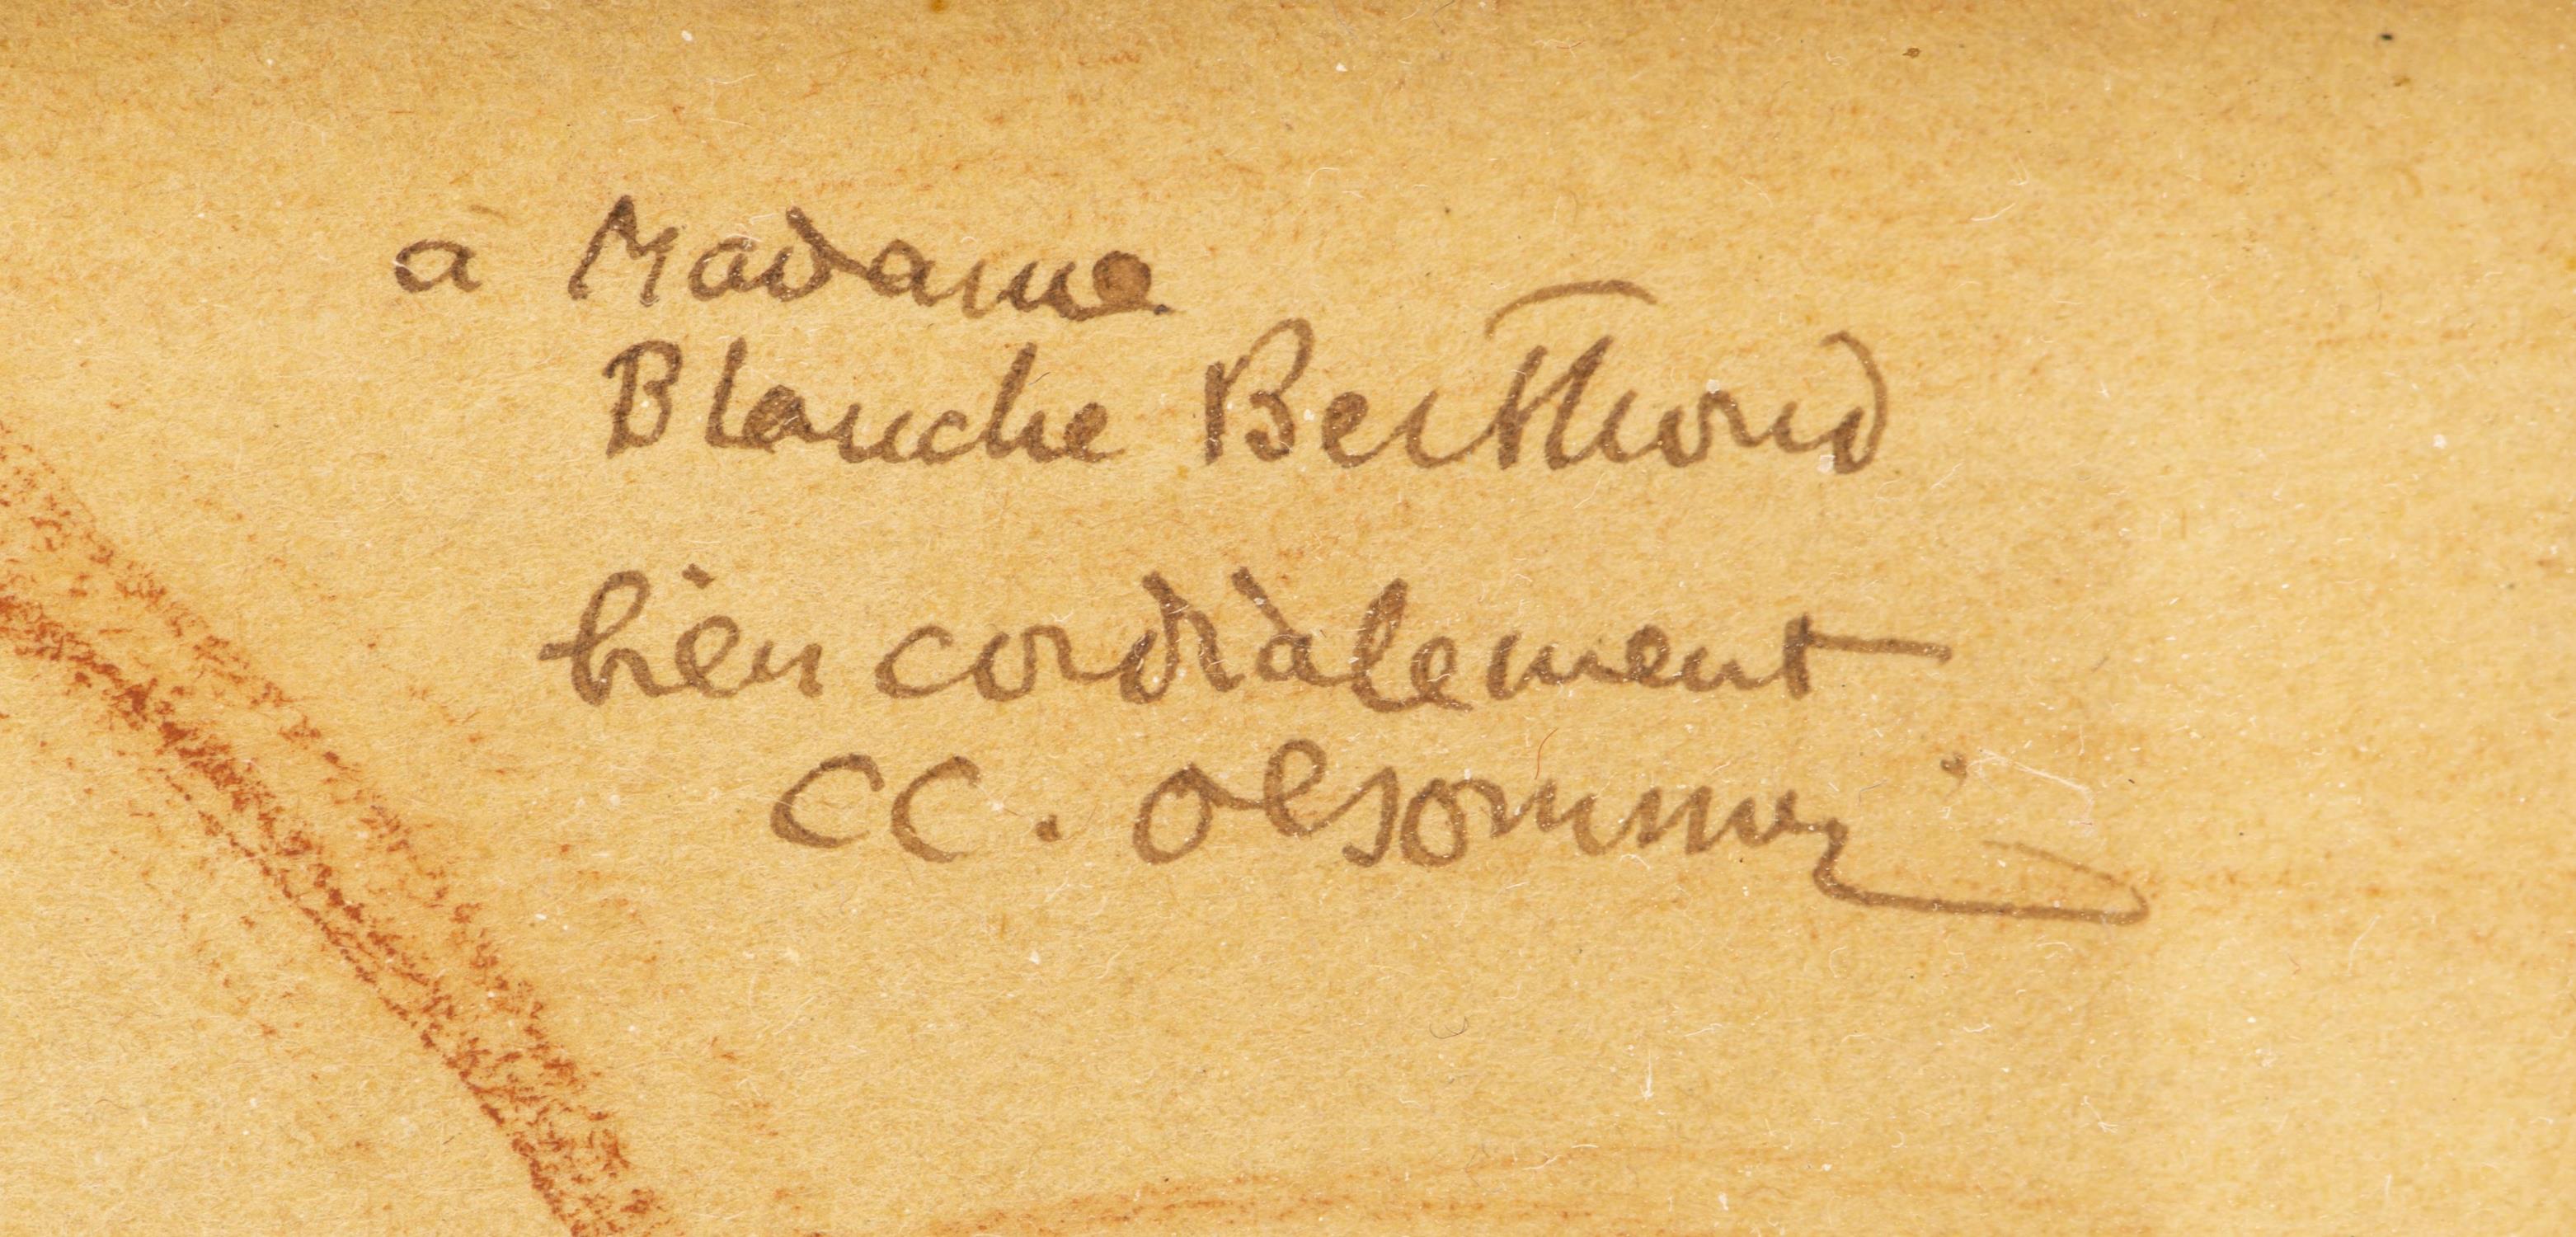 à Madame
Blanche Berthoud
bien cordialement
CC. Olsommer.